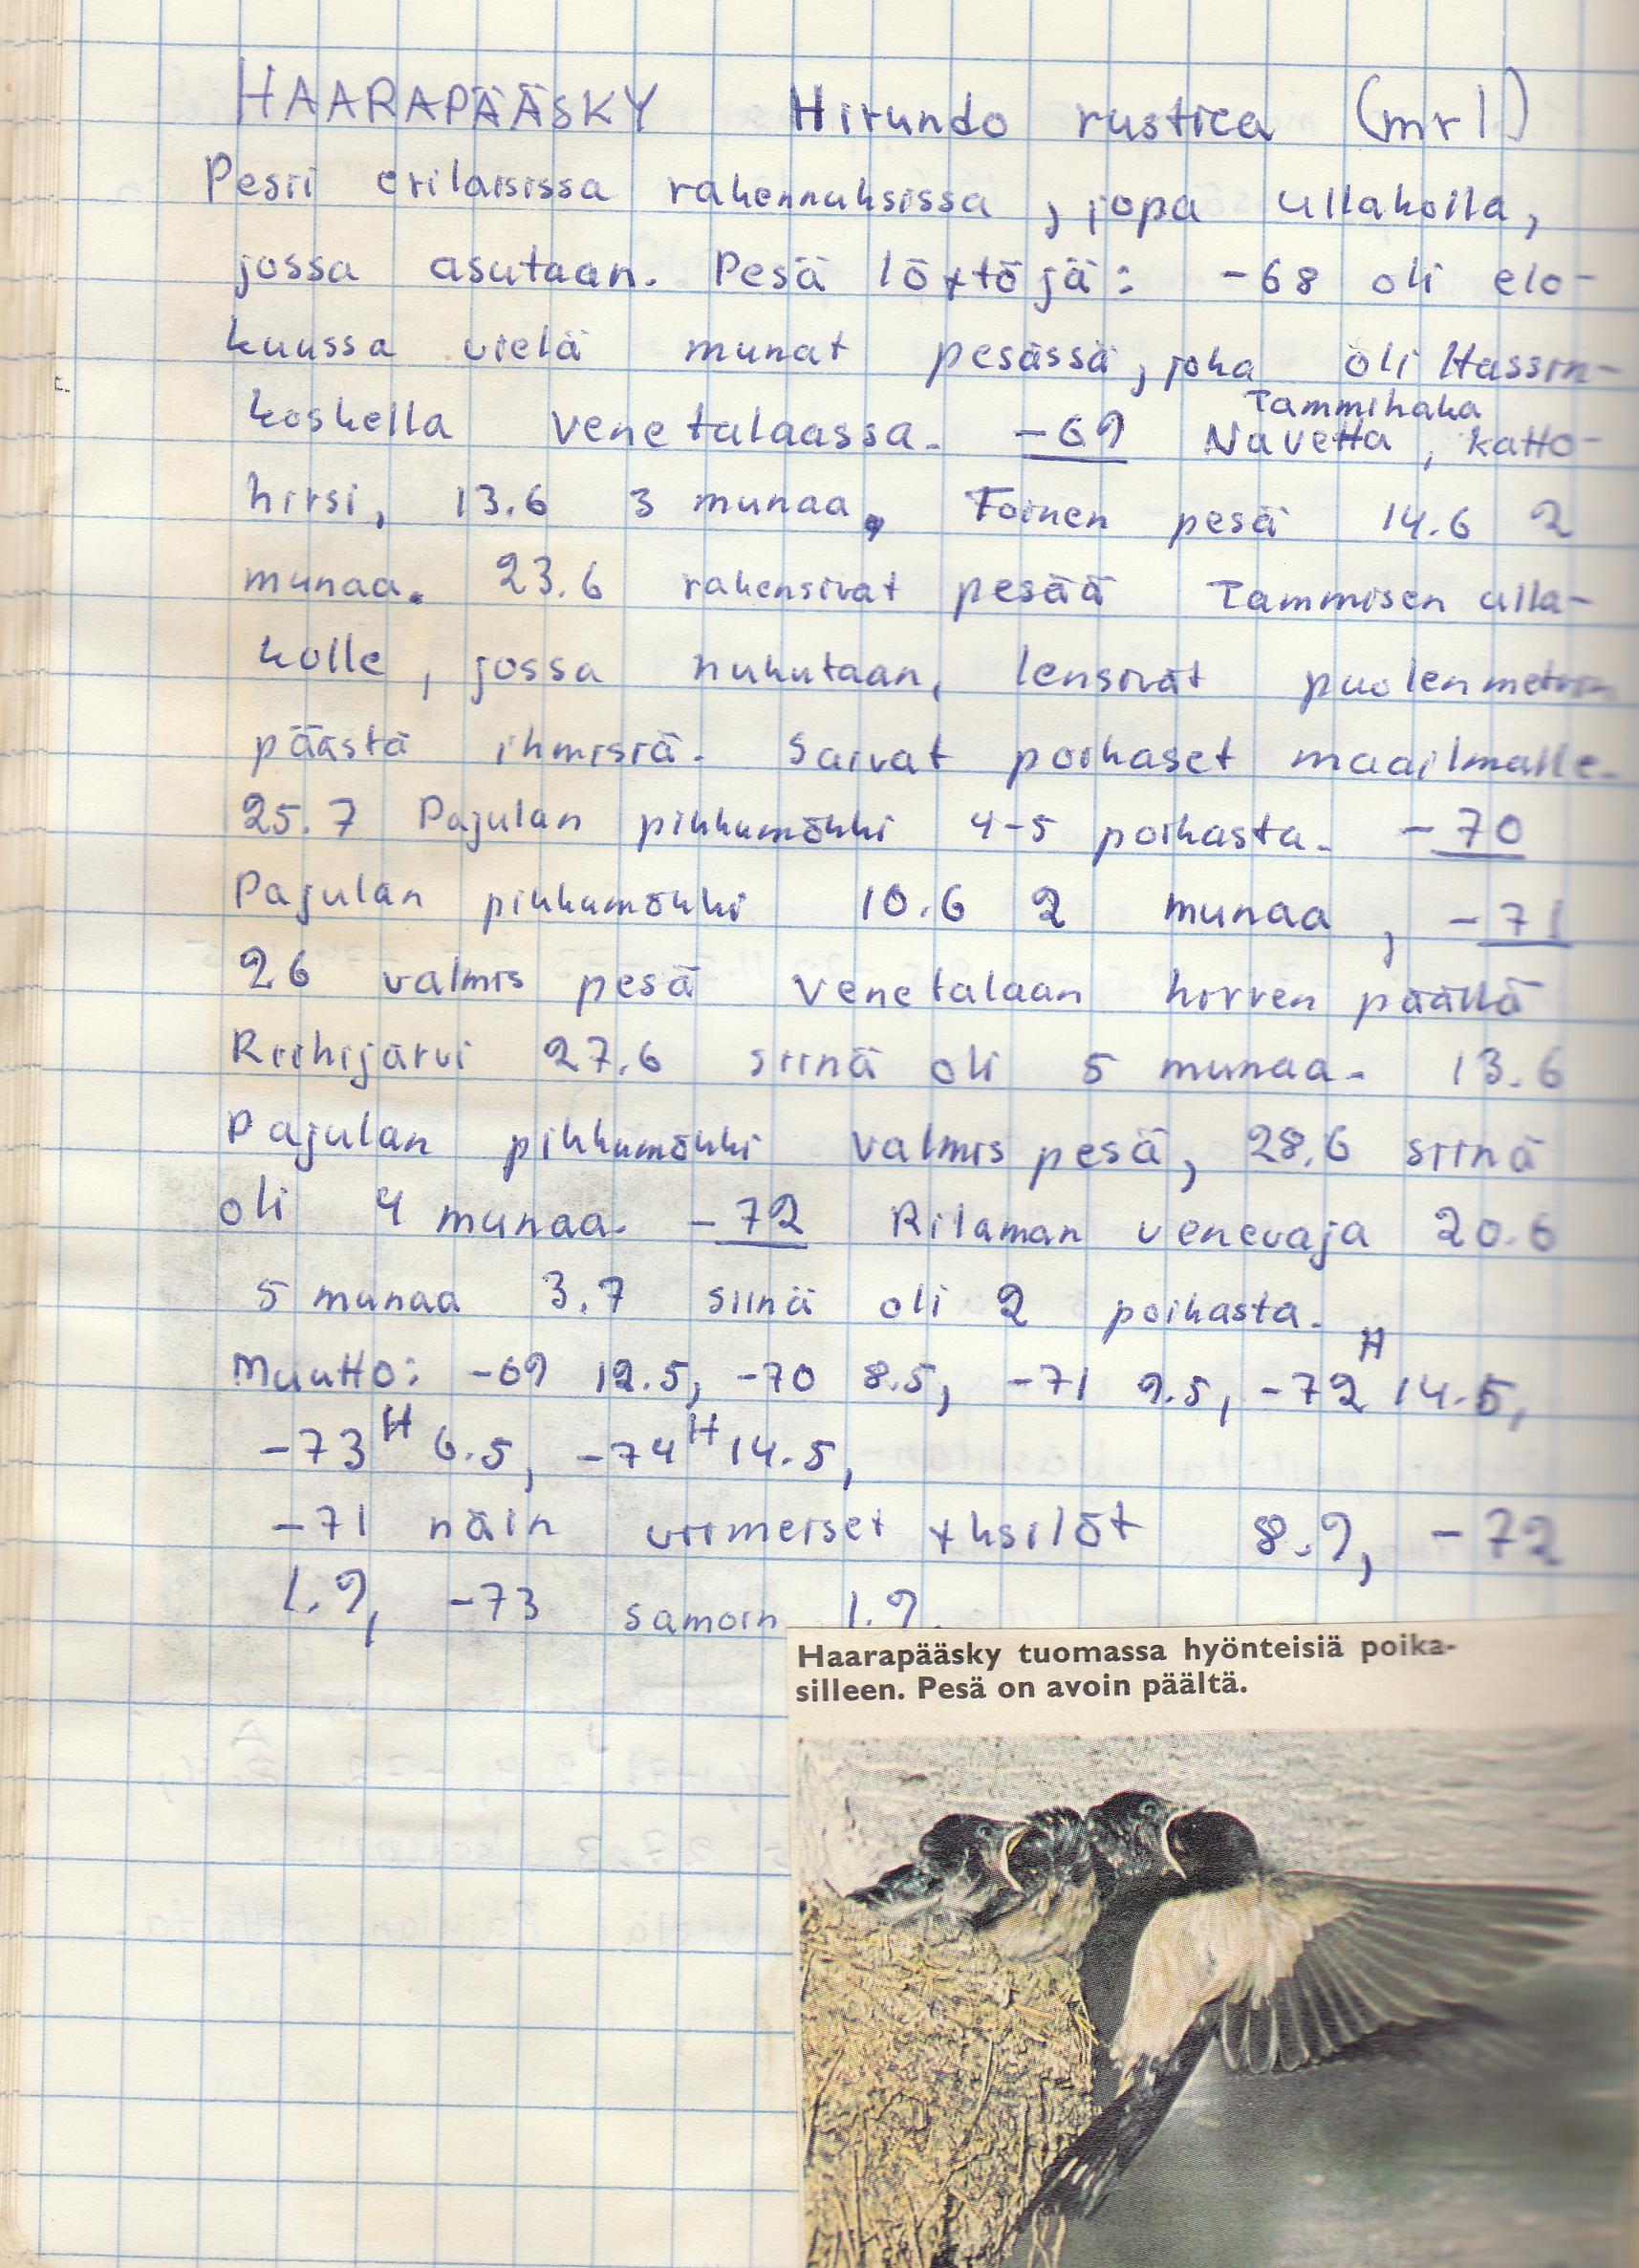 HAARAPÄÄSKY Hirundo rustica (mrl)
Pesii erilaisissa rakennuksissa, jopa ullakolla,
jossa asutaan. Pesä löytöjä: -68 oli elo-
kuussa vielä munat pesässä, joka oli Hassin-
koskella venetalaassa. -69 Navetta, katto-
Tammihaka
hirsi, 13.6 3 munaa, Toinen pesä 14.6 2
munaa. 23.6 rakensivat pesää Tammisen ulla-
kolle, jossa nukutaan, lensivät puolenmetrin
päästä ihmisiä. Saivat poikaset maailmalle.
25.7 Pajulan pikkumökki 4-5 poikasta. -70
Pajulan pikkumökki 10.6 2 munaa, -71
26 valmis pesä venetalaan hirren päällä
Riihijärvi 27.6 siinä oli 5 munaa. 13.6
Pajulan pikkumökki valmis pesä, 28.6 siinä
oli 4 munaa. -72 Rilaman venevaja 20.6
5 munaa 3.7 siinä oli 2 poikasta.
Muutto: -69 12.5, -70 8.5, -71 9.5, -72 H 14.5,
-73 H 6.5, -74 H 14.5,
-71 näin viimeiset yksilöt 8.9, -72
1.9, -73 samoin 1.9.
Haarapääsky tuomassa hyönteisiä poika-
silleen. Pesä on avoin päältä.